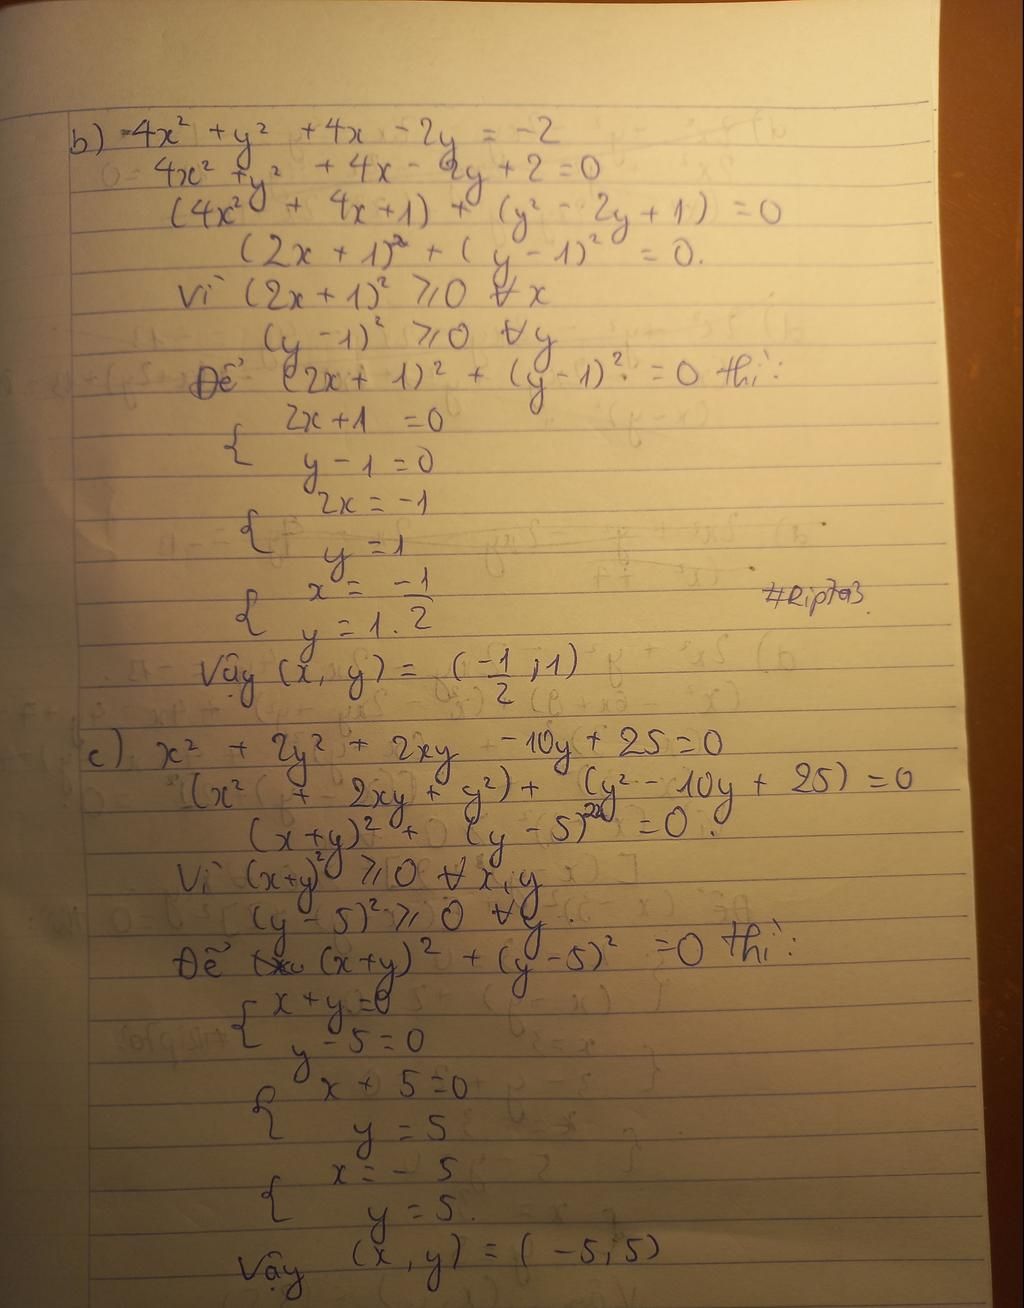 b) -4x² + y² + 4x - 2y = -2
4x² + y² + 4x - 2y + 2 = 0
(4x² + 4x + 1) + (y² - 2y + 1) = 0
(2x + 1)² + (y - 1)² = 0.
Vì (2x + 1)² ⩾ 0 ∀x
(y - 1)² ⩾ 0 ∀y
Để (2x + 1)² + (y - 1)² = 0 thì:
{ 2x + 1 = 0
y - 1 = 0
{ 2x = -1
y = 1
{ x = -1/2
y = 1.
#Riptas
Vậy (x, y) = (-1/2; 1)
c) x² + 2y² + 2xy - 10y + 25 = 0
(x² + 2xy + y²) + (y² - 10y + 25) = 0
(x + y)² + (y - 5)² = 0.
Vì (x+y)² ⩾ 0 ∀x, y
(y - 5)² ⩾ 0 ∀y.
Để (x+y)² + (y - 5)² = 0 thì:
{ x + y = 0
y - 5 = 0
{ x + 5 = 0
y = 5
{ x = -5
y = 5.
Vậy (x, y) = (-5; 5)